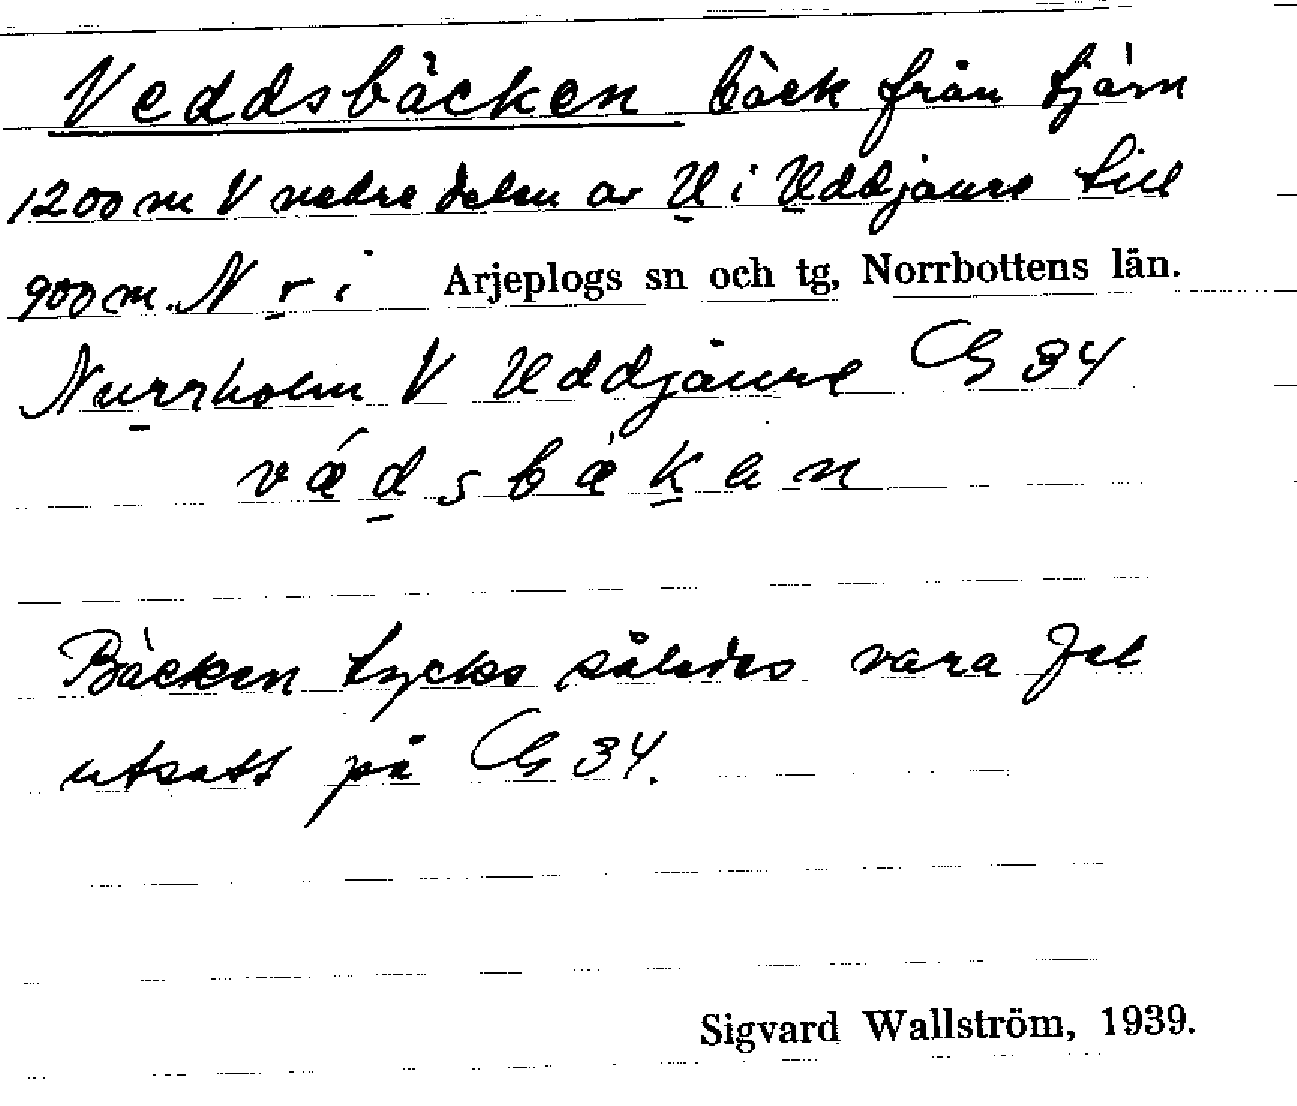 Veddsbäcken bäck från tjärn
1200 m V nedre delen av U i Uddjaure till
900 m. N r i Arjeplogs sn och tg, Norrbottens län.
Nurrholm V Uddjaure G 34
vǽdsbækan
Bäcken tycks således vara fel
utsatt på G 34.
Sigvard Wallström, 1939.